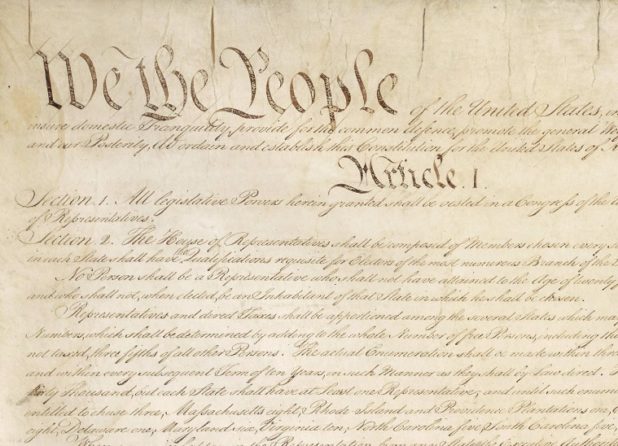 We the People of the United States, in
insure domestic Tranquility, provide for the common defence, promote the general
and our Posterity, do ordain and establish this Constitution for the United States of
Article. I.
Section. 1. All legislative Powers herein granted shall be vested in a Congress of the
of Representatives.
Section. 2. The House of Representatives shall be composed of Members chosen every
in each State shall have the Qualifications requisite for Electors of the most numerous Branch of the
No Person shall be a Representative who shall not have attained to the Age of twenty
and who shall not, when elected, be an Inhabitant of that State in which he shall be chosen.
Representatives and direct Taxes shall be apportioned among the several States which may
Numbers, which shall be determined by adding to the whole Number of free Persons, including
not taxed, three fifths of all other Persons. The actual Enumeration shall be made within
and within every subsequent Term of ten Years, in such Manner as they shall by Law direct.
thirty Thousand, but each State shall have at Least one Representative; and until such
entitled to chuse three, Massachusetts eight, Rhode Island and Providence Plantations one,
eight, Delaware one, Maryland six, Virginia ten, North Carolina five, South Carolina five,